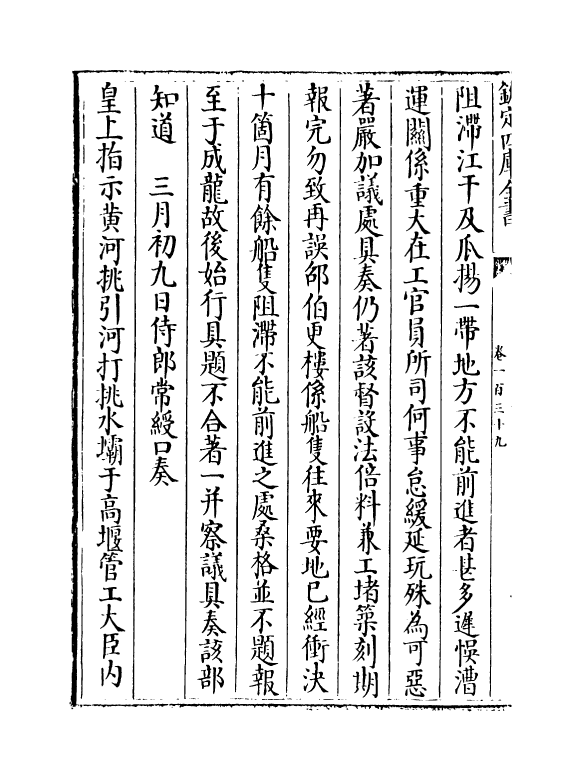 欽定四庫全書
卷一百三十九
阻滯江干及瓜揚一帶地方不能前進者甚多遲悞漕
運關係重大在工官員所司何事怠緩延玩殊為可惡
著嚴加議處具奏仍著該督設法倍料兼工堵築刻期
報完勿致再誤邵伯更樓係船隻往來要地已經衝決
十箇月有餘船隻阻滯不能前進之處桑格並不題報
至于成龍故後始行具題不合著一并察議具奏該部
知道　三月初九日侍郎常綬口奏
皇上指示黄河挑引河打挑水壩于高堰管工大臣内